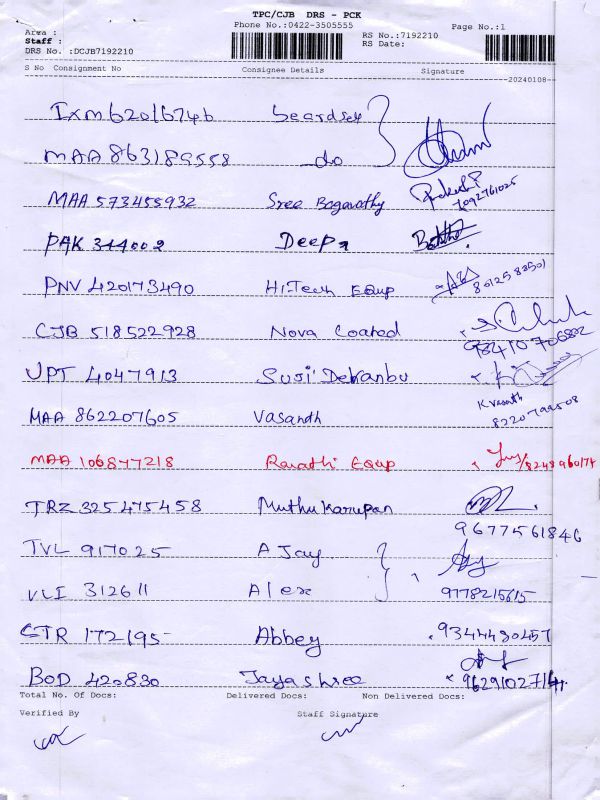 TPC/CJB DRS - PCK
Phone No.:0422-3505555 Page No.:1
Area :
Staff :
DRS No. :DCJB7192210 RS No.:7192210
RS Date:
S No Consignment No Consignee Details Signature
20240108
IXM 620167746 Seardsey
MAA 863189558 do
MAA 573455932 Sree Bagavathy 7092761025
PAK 344002 Deepa
PNV 420173490 Hi-Tech Equp 8012583501
CJB 518522928 Nova Coated 98410706802
UPT 4047913 Susi Devanbu
MAA 862207605 Vasandh K Vasanth 8220799508
MAA 106877218 Revathi Equp 8248960174
TRZ 325475458 Muthukarupan 9677561846
TVL 917025 AJay
VLI 312611 Alex 9778215615
CTR 172195 Abbey 9344480457
BOD 420830 Jayashree 9629102714
Total No. Of Docs: Delivered Docs: Non Delivered Docs:
Verified By Staff Signature